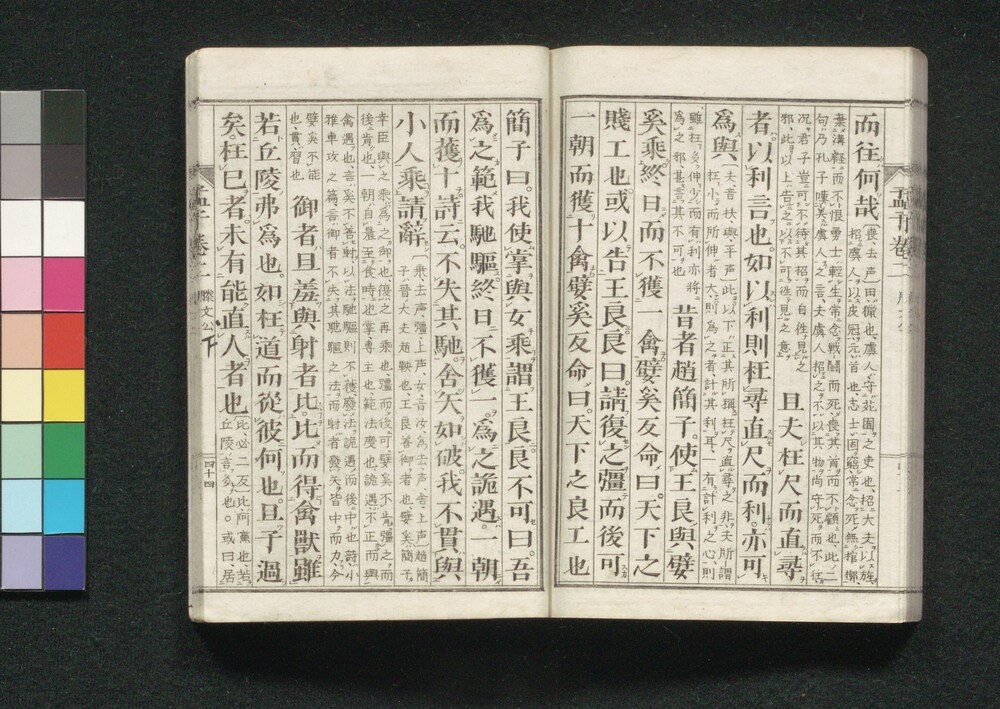 而往何哉
喪、去声、田、猟也、虞人、守苑囿之吏也、招大夫以旌、
招虞人以皮冠、元首也、志士固窮、常念死無棺槨、
棄溝壑而不恨、勇士輕生、常念戰鬪而死、喪其首而不顧也、此二
句乃孔子嘆美虞人之言、夫虞人招之不以其物、尚守死而不往、
况君子豈可不待其招而自往見之
邪、此以上告之以不可往見之意、
且夫枉尺而直尋
者以利言也。如以利則枉尋直尺而利。亦可
爲與
夫音扶、與平声、此以下正其所稱枉尺直尋之非、夫所謂
枉小而所伸者大則爲之者計其利耳、一有計利之心、則
雖枉多伸少而有利亦將
爲之邪、甚言其不可也
昔者趙簡子。使王良與嬖
奚乘。終日而不獲一禽。嬖奚反命曰。天下之
賤工也。或以告王良。良曰。請復之。彊而後可
一朝而獲十禽。嬖奚反命曰。天下之良工也
簡子曰。我使掌與女乘。謂王良。良不可曰。吾
爲之範我馳驅。終日不獲一。爲之詭遇。一朝
而獲十。詩云。不失其馳。舍矢如破。我不貫與
小人乘。請辭
乘去声、彊上声、女音汝、爲去声、舍上声、趙簡
子、晉大夫趙鞅也、王良善御者也、嬖奚簡子
幸臣、與之乘爲之御也、復之再乘也、彊而後可嬖奚不肯、彊之而
後肯也、一朝自晨至食時也、掌專主也、範法度也、詭遇不正而與
禽遇也、言奚不善射、以法馳驅則不獲、廢法詭遇而後中也、詩小
雅車攻之篇、言御者不失其馳驅之法、而射者發矢皆中而力、今
嬖奚不能
也、貫習也
御者且羞與射者比。比而得禽獸。雖
若丘陵弗爲也。如枉道而從彼何也。且子過
矣。枉己者。未有能直人者也
比必二反、比阿黨也、若
丘陵言多也。或曰、居
孟子卷二 滕文公下 四十四